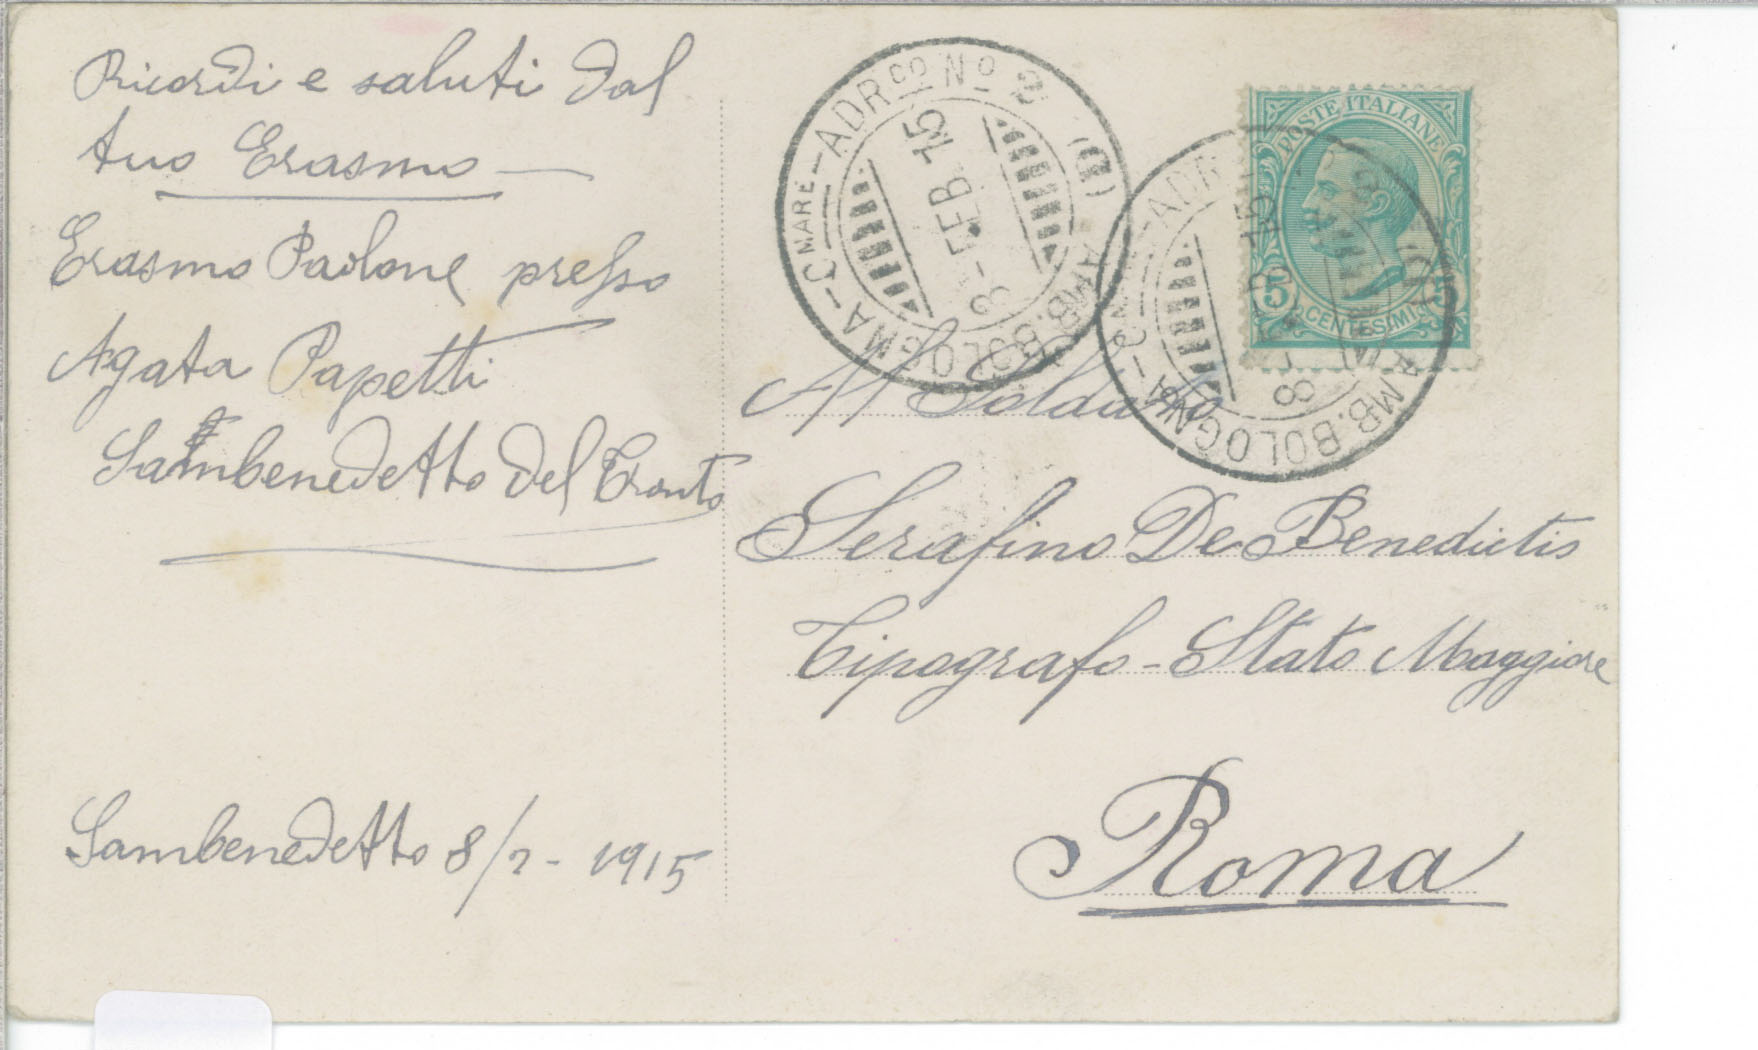 Ricordi e saluti dal
tuo Erasmo
Erasmo Paolone presso
Agata Papetti
Sambenedetto del Tronto
Sambenedetto 8/2 - 1915
AMB. BOLOGNA-CMARE-ADRCO No 2 (G)
8-FEB.15
AMB. BOLOGNA-CMARE-ADR
8 15
POSTE ITALIANE
5 CENTESIMI 5
Al Soldato
Serafino De Benedictis
Tipografo-Stato Maggiore
Roma